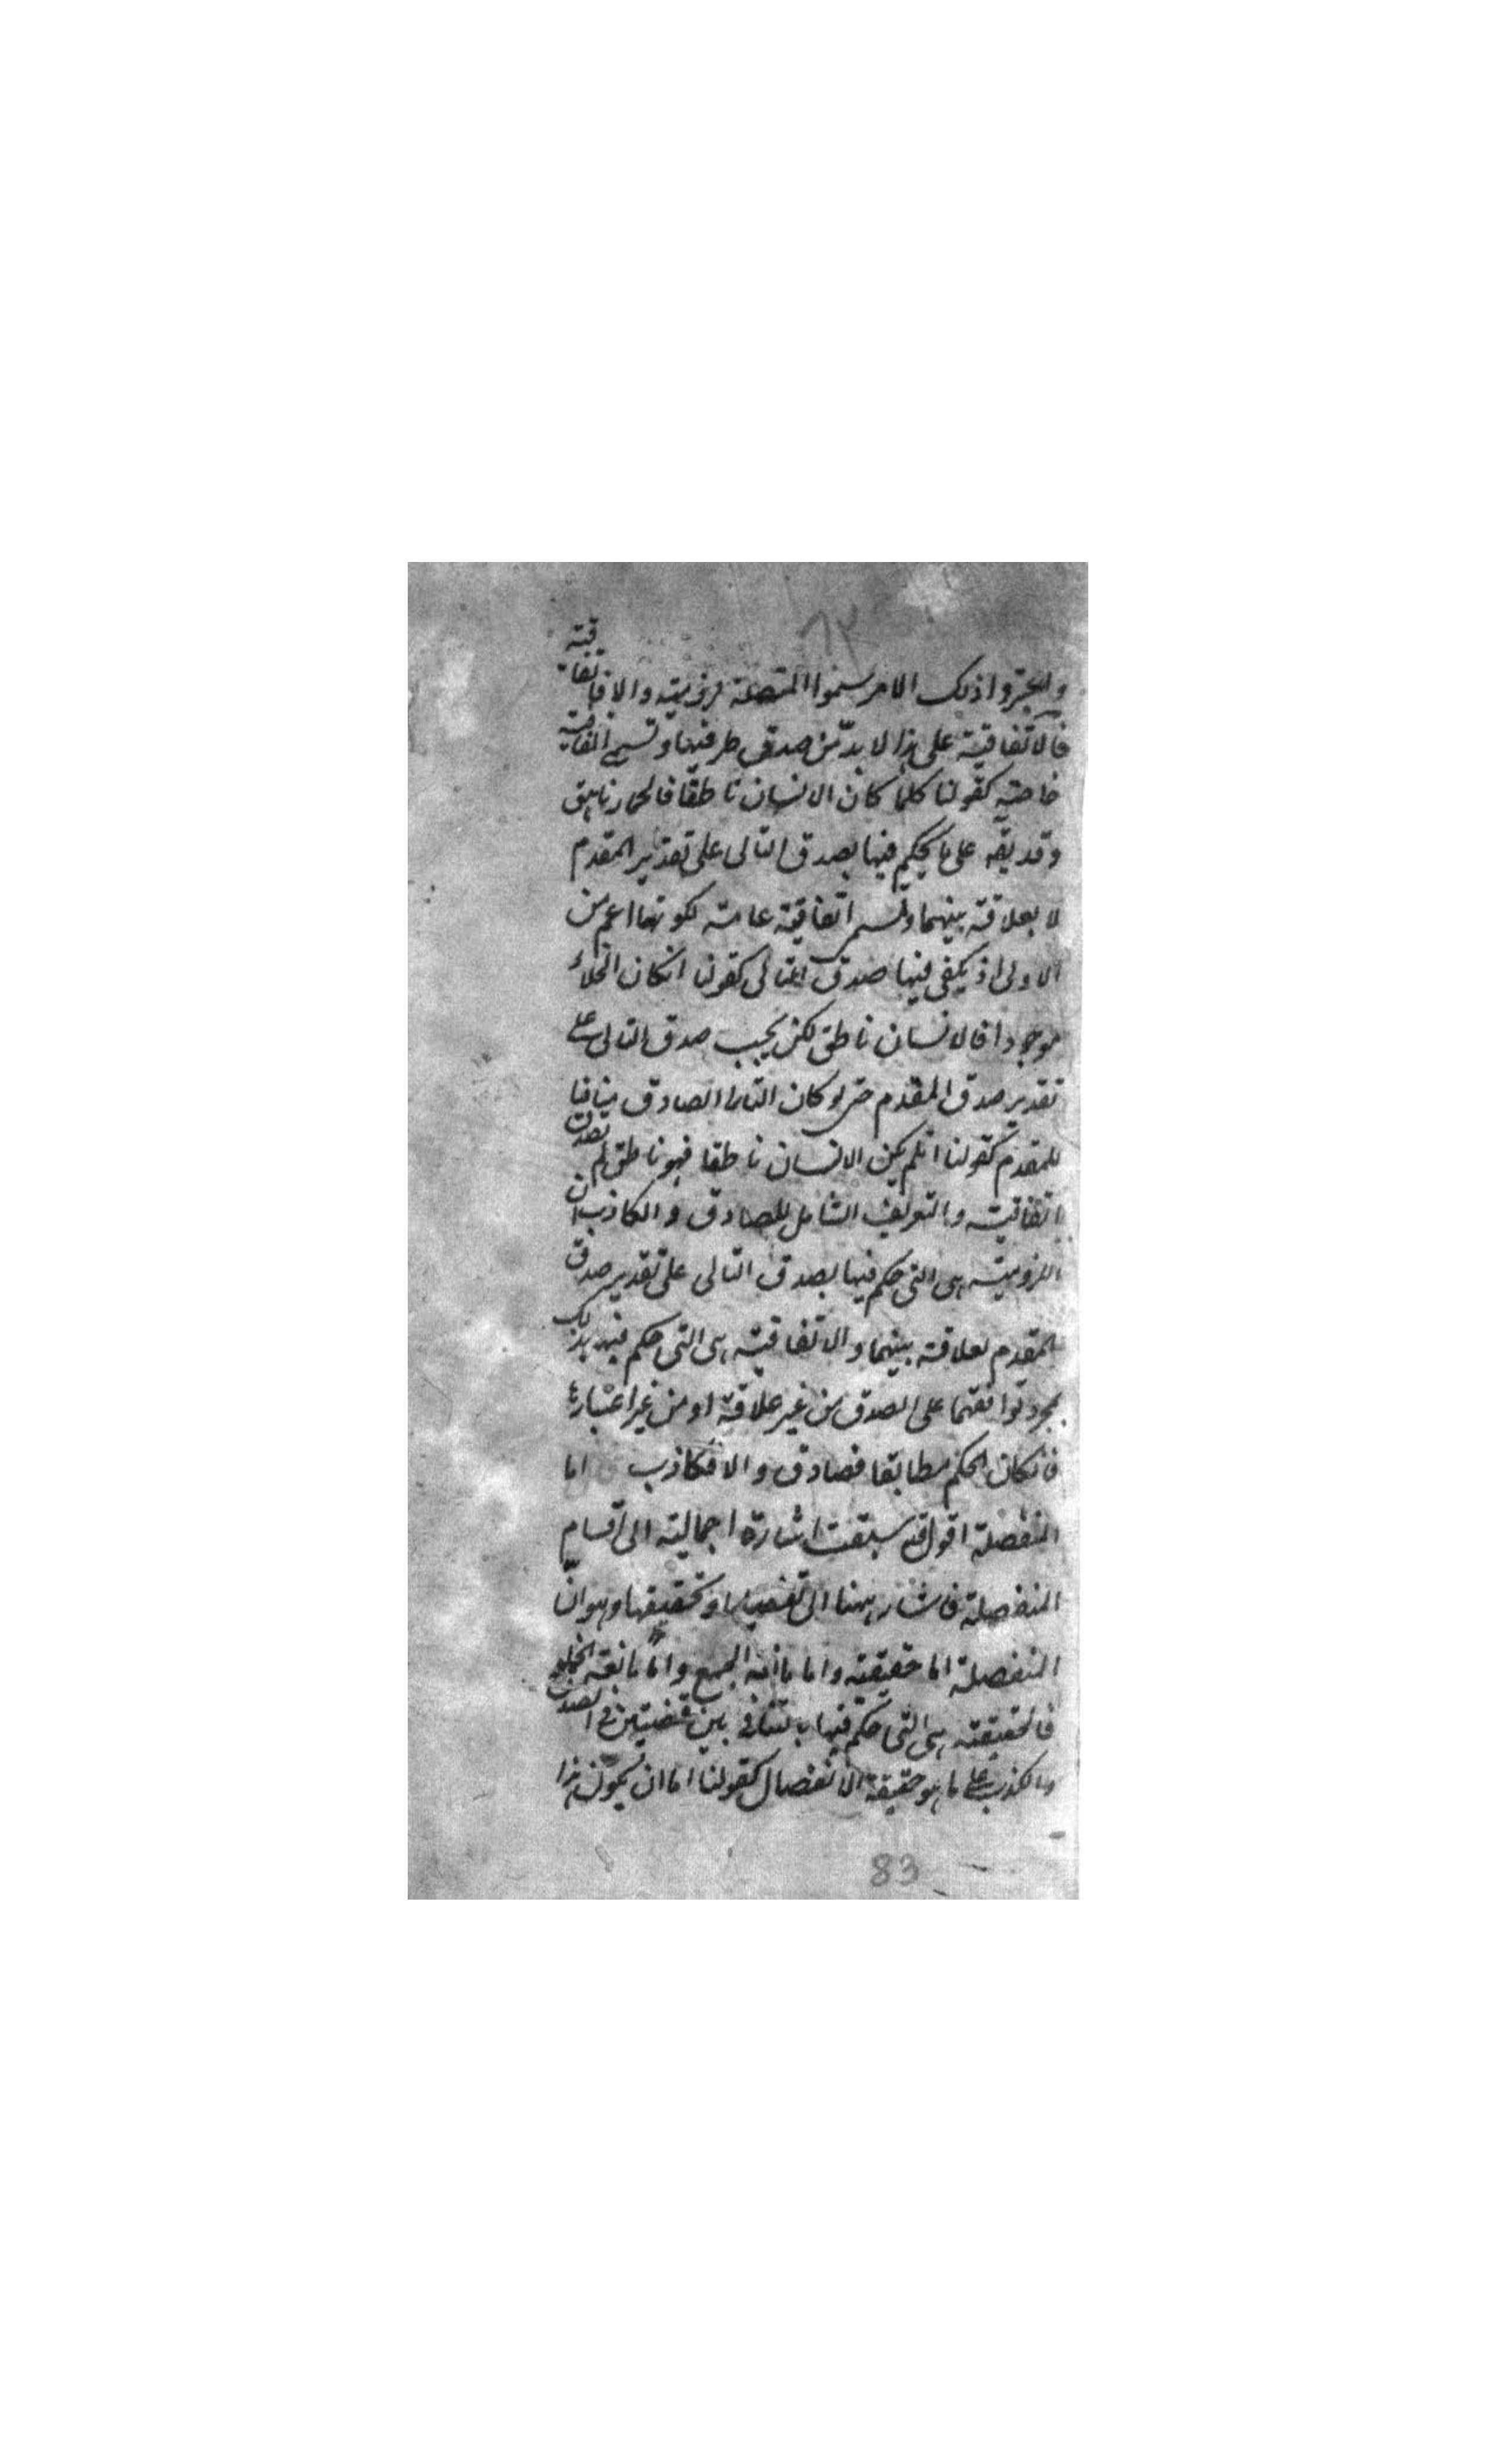 ٨٣
واعتبروا ذلك الامر سموا المتصلة لزومية والا فاتفاقية
فالاتفاقية على هذا لا بدّ من صدق طرفيها وتسمى اتفاقية
خاصة كقولنا كلما كان الانسان ناطقا فالحمار ناهق
وقد يقه على ما يحكم فيها بصدق التالى على تقدير المقدم
لا بعلاقة بينهما وتسمى اتفاقية عامة لكونها اعم من
الاولى اذ يكفى فيها صدق التالى كقولنا انكان الخلاء
موجودا فالانسان ناطق لكن يجب صدق التالى على
تقدير صدق المقدم حتى لو كان التالى الصادق منافيا
للمقدم كقولنا انلم يكن الانسان ناطقا فهو ناطق لم تصدق
اتفاقية والتعريف الشامل للصادق والكاذب ان
اللزومية هى التى حكم فيها بصدق التالى على تقدير صدق
المقدم لعلاقة بينهما والاتفاقية هى التى حكم فيها بذلك
بمجرد توافقهما على الصدق من غير علاقة او من غير اعتبارها
فانكان الحكم مطابقا فصادق والا فكاذب اما
المنفصلة اقول قد سبقت اشارة اجمالية الى اقسام
المنفصلة فاشار ههنا الى تفصيلها وتحقيقها وهو انّ
المنفصلة اما حقيقية واما مانعة الجمع واما مانعة الخلو
فالحقيقية هى التى حكم فيها بالتنافى بين قضيتين فى الصدق
والكذب على ما هو حقيقة الانفصال كقولنا اما ان يكون هذا
83